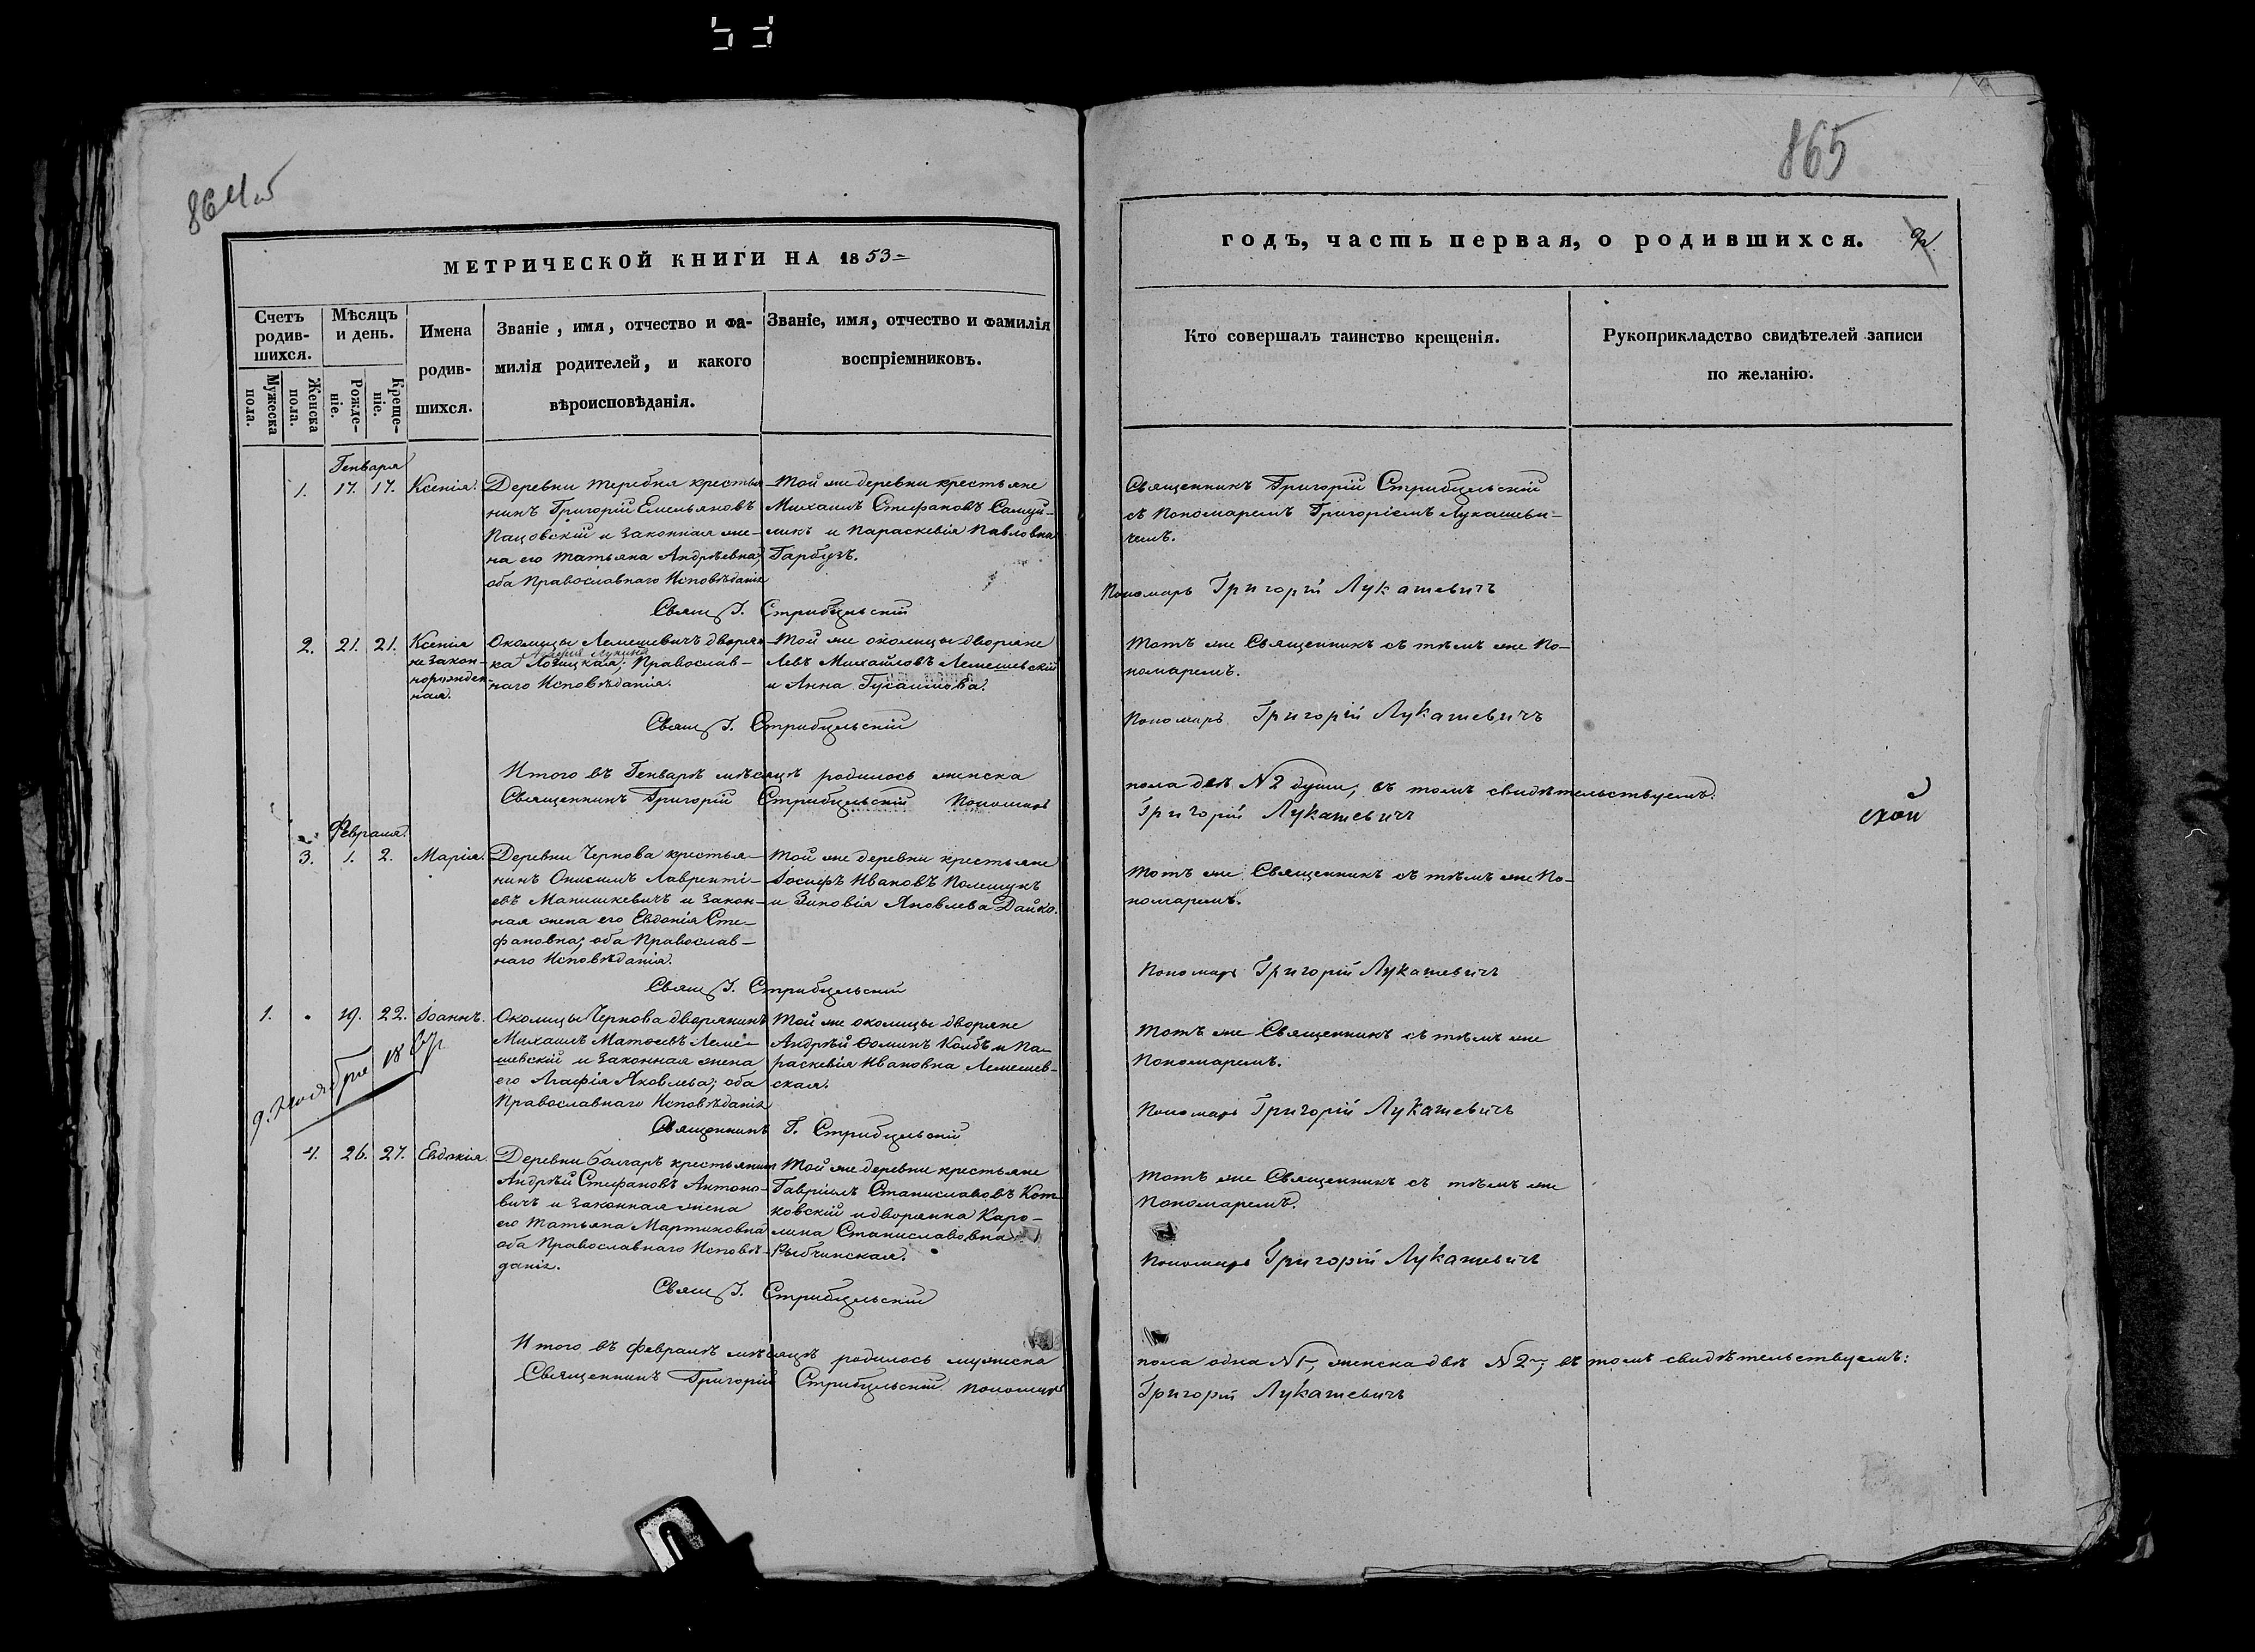 53
864об
865
МЕТРИЧЕСКОЙ КНИГИ НА 1853
годъ, часть первая, о родившихся.
Счетъ родившихся.
Мужеска пола.
Женска пола.
Мѣсяцъ и день.
Рожденіе.
Крещеніе.
Имена родившихся.
Званіе, имя, отчество и фамилія родителей, и какого вѣроисповѣданія.
Званіе, имя, отчество и фамилія воспріемниковъ.
Кто совершалъ таинство крещенія.
Рукоприкладство свидѣтелей записи по желанію.
Генваря
1. 17. 17. Ксенія.
Деревни Теребня крестья-
нинъ Григорій Емельяновъ
Пацовскій и законная же-
на его Татьяна Андрѣевна,
оба Православнаго Исповѣданія
Той же деревни крестьяне
Михаилъ Стефановъ
и Параскевія Павловна
Гарбузъ.
Священникъ Григорій Стрибульскій
съ Пономаремъ Григоріемъ Лукашеви-
чемъ.
Свящ. Г. Стрибульскій
Пономарь Григорій Лукашевичъ
2. 21. 21. Ксенія
незакон-
норожден-
ная.
Околицы Лемешевичъ дворян-
ка Лозицкая; Православ-
наго Исповѣданія.
Той же околицы дворяне
Левъ Михайловъ Лемешевскій
и Анна
Тотъ же Священникъ съ тѣмъ же По-
номаремъ.
Свящ. Г. Стрибульскій
Пономарь Григорій Лукашевичъ
Итого въ Генварѣ мѣсяцѣ родилось женска
пола двѣ №2 души, въ томъ свидѣтельствуемъ:
Священникъ Григорій Стрибульскій Пономарь
Григорій Лукашевичъ
Февраля
3. 1. 2. Марія.
Деревни Чернова крестья-
нинъ Онисимъ Лавренті-
евъ Манишкевичъ и закон-
ная жена его Евдокія Сте-
фановна; оба Православ-
наго Исповѣданія.
Той же деревни крестьяне
Іосифъ Ивановъ Полещукъ
и Зиновія Яковлева Дайко.
Тотъ же Священникъ съ тѣмъ же По-
номаремъ.
Свящ. Г. Стрибульскій
Пономарь Григорій Лукашевичъ
1. 19. 22. Іоаннъ.
Околицы Чернова дворянинъ
Михаилъ Матѳеевъ Леме-
шевскій и законная жена
его Агафія Яковлева; оба
Православнаго Исповѣданія
Той же околицы дворяне
Андрѣй Ѳоминъ Колбъ и Па-
раскевія Ивановна Лемешев-
ская.
Тотъ же Священникъ съ тѣмъ же
Пономаремъ.
Священникъ Г. Стрибульскій
Пономарь Григорій Лукашевичъ
4. 26. 27. Евдокія.
Деревни Болгаръ крестьянинъ
Андрѣй Стефановъ Антоно-
вичъ и законная жена
его Татьяна Мартиновна
оба Православнаго Исповѣ-
данія.
Той же деревни крестьяне
Гавріилъ Станиславовъ Кот-
ковскій и дворянка Каро-
лина Станиславовна
Рыбчинская.
Тотъ же Священникъ съ тѣмъ же
Пономаремъ.
Свящ. Г. Стрибульскій
Пономарь Григорій Лукашевичъ
Итого въ Февралѣ мѣсяцѣ родилось мужеска
пола одна №1, женска двѣ №2, въ томъ свидѣтельствуемъ:
Священникъ Григорій Стрибульскій Пономарь
Григорій Лукашевичъ